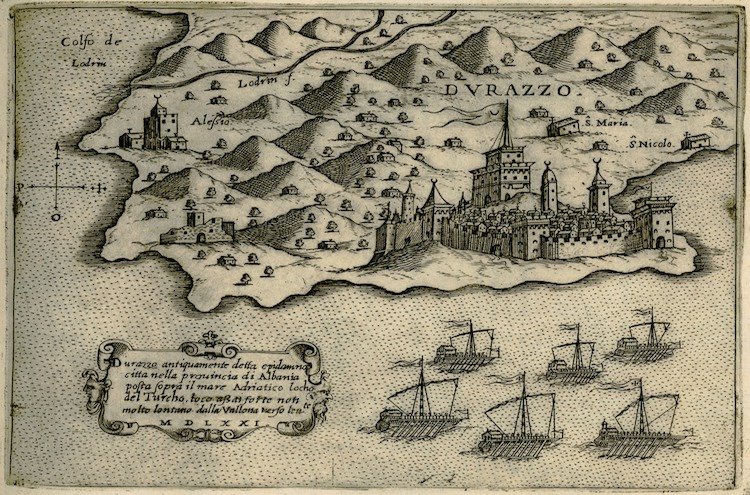 Colfo de
Lodrin
Lodrin f.
DVRAZZO
Alessio
S. Maria
S. Nicolo.
P
Durazzo antiquamente detta epidamno
citta nella prouincia di Albania
posta sopra il mare Adriatico locho
del Turcho, loco assai forte non
molto lontano dalla Vallona verso
M D L X X I